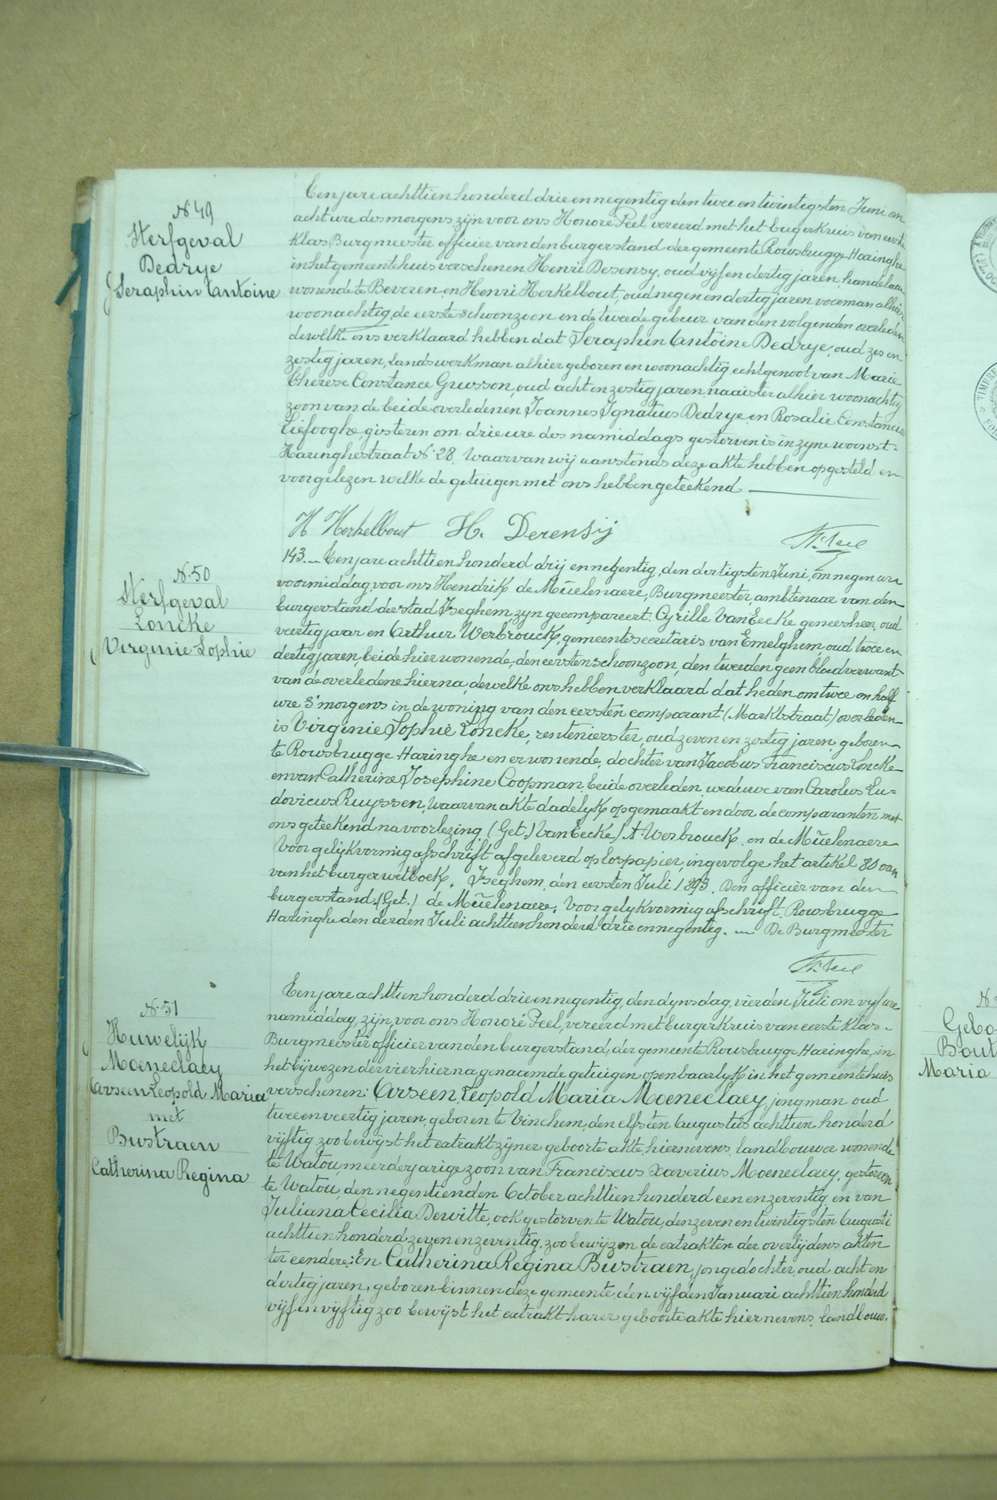 N 49
Sterfgeval
Dedrye
Seraphin Antoine
Eenjare achttien honderd drie en negentig den twee en twintigsten Juni om
acht ure des morgens zijn voor ons Honoré Peel vereerd met het burgerkruis van eerste
Klas Burgmeester officier van den burgerstand der gemeente Rousbrugge Haringhe
in het gemeentehuis verschenen Henri Desensy, oud vijf en dertig jaren handelaar
wonende te Beveren en Henri Herkelbout, oud negen en dertig jaren voerman alhier
woonachtig, de eerste schoonzoon en de tweede gebuur van den volgenden overleden
dewelke ons verklaard hebben dat Seraphin Antoine Dedrye, oud zes en
zestig jaren, landswerkman alhier geboren en woonachtig echtgenoot van Marie
Therese Constance Grusson, oud acht en zestig jaren naaister alhier woonachtig
zoon van de beide overledenen Joannes Ignatius Dedrye en Rosalie Constancia
Liefooghe gisteren om drie ure des namiddags gestorven is in zyne woonst
Haringhestraat N 28. Waarvan wij aanstonds deze akte hebben opgesteld en
voorgelezen welke de getuigen met ons hebben geteekend
H Herkelbout H. Derensij
H. Peel
N. 50
Sterfgeval
Loncke
Virginie Sophie
143. Eenjare achttien honderd drij en negentig, den dertigsten Juni, om negen ure
voormiddag, voor ons Hendrik de Mûelenaere, Burgmeester, ambtenaar van den
burgerstand der stad Iseghem, zyn gecompareert. Cyrille Van Eecke geneesheer, oud
veertig jaar en Arthur Werbrouck, gemeentesecretaris van Emelghem, oud twee en
dertig jaren, beide hier wonende, den eersten schoonzoon, den tweeden geen bloedverwant
van de overledene hierna, dewelke ons hebben verklaard dat heden om twee en half
ure 's morgens in de woning van den eersten comparant (Marktstraat) overleden
is Virginie Sophie Loncke, rentenierster, oud zeven en zestig jaren, geboren
te Rousbrugge Haringhe en er wonende, dochter van Jacobus Franciscus Loncke
en van Catherine Josephine Coopman, beide overleden, weduwe van Carolus Lu-
dovicus Ruyssen. Waarvan akte dadelyk opgemaakt en door de comparanten met
ons geteekend na voorlezing (Get.) Van Eecke, A. Werbrouck en de Mûelenaere
Voor gelijkvormig afschrift afgeleverd op los papier, ingevolge het artikel 80
van het burger wetboek. Iseghem, den eersten Juli 1893. Den officier van den
burgerstand. (Get.) de Mûelenaere. Voor gelykvormig afschrift, Rousbrugge
Haringhe den derden Juli achttien honderd drie en negentig. De Burgmeester
H. Peel
N. 51
Huwelijk
Moeneclaey
Arseen Leopold Maria
met
Bustraen
Catherina Regina
Eenjare achttien honderd drie en negentig, den dynsdag, vierden Juli om vyf ure
namiddag, zijn, voor ons Honoré Peel, vereerd met burgerkruis van eerste Klas
Burgmeester officier van den burgerstand, der gemeente Rousbrugge Haringhe, in
het bijwezen der vier hierna genoemde getuigen openbaarlyk in het gemeentehuis
verschenen: Arseen Leopold Maria Moeneclaey, jongman oud
twee en veertig jaren, geboren te Vinchem, den elfsten Augustus achttien honderd
vijftig zoo bewyst het extrakt zijner geboorte akte hiernevens, landbouwer wonende
te Watou, meerderjarige zoon van Franciscus Xaverius Moeneclaey, gestorven
te Watou, den negentienden October achttien honderd een en zeventig en van
Juliana Cecilia Dewitte, ook gestorven te Watou, den zeven en twintigsten Augusti
achttien honderd zeven en zeventig, zoo bewijzen de extrakten der overlijdens akten
ter eendere; En Catharina Regina Bustraen, jonge dochter, oud acht en
dertig jaren, geboren binnen deze gemeente den vijfden Januari achttien honderd
vijf en vyftig zoo bewijst het extrakt harer geboorte akte hier nevens, landbouw-
Maria